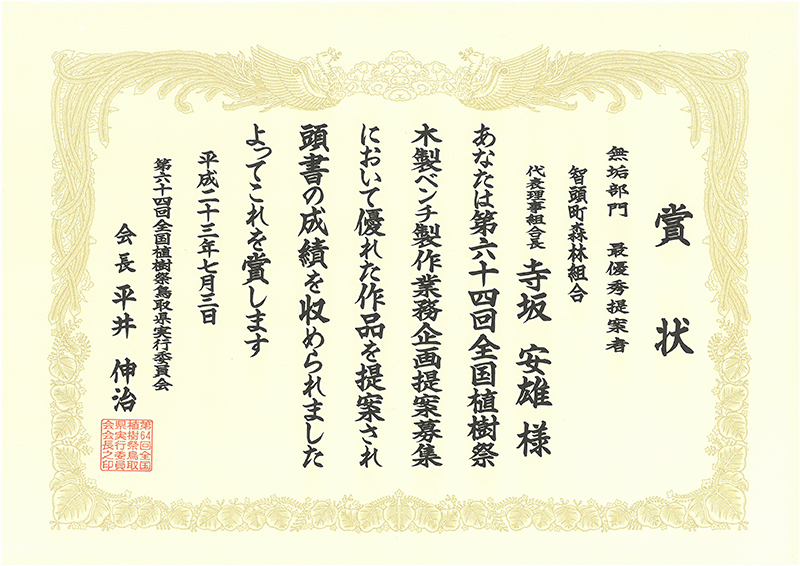 賞状
無垢部門 最優秀提案者
智頭町森林組合
代表理事組合長 寺坂 安雄 様
あなたは第六十四回全国植樹祭
木製ベンチ製作業務企画提案募集
において優れた作品を提案され
頭書の成績を収められました
よってこれを賞します
平成二十三年七月三日
第六十四回全国植樹祭鳥取県実行委員会
会長 平井 伸治
第64回全国
植樹祭鳥取
県実行委員
会会長之印